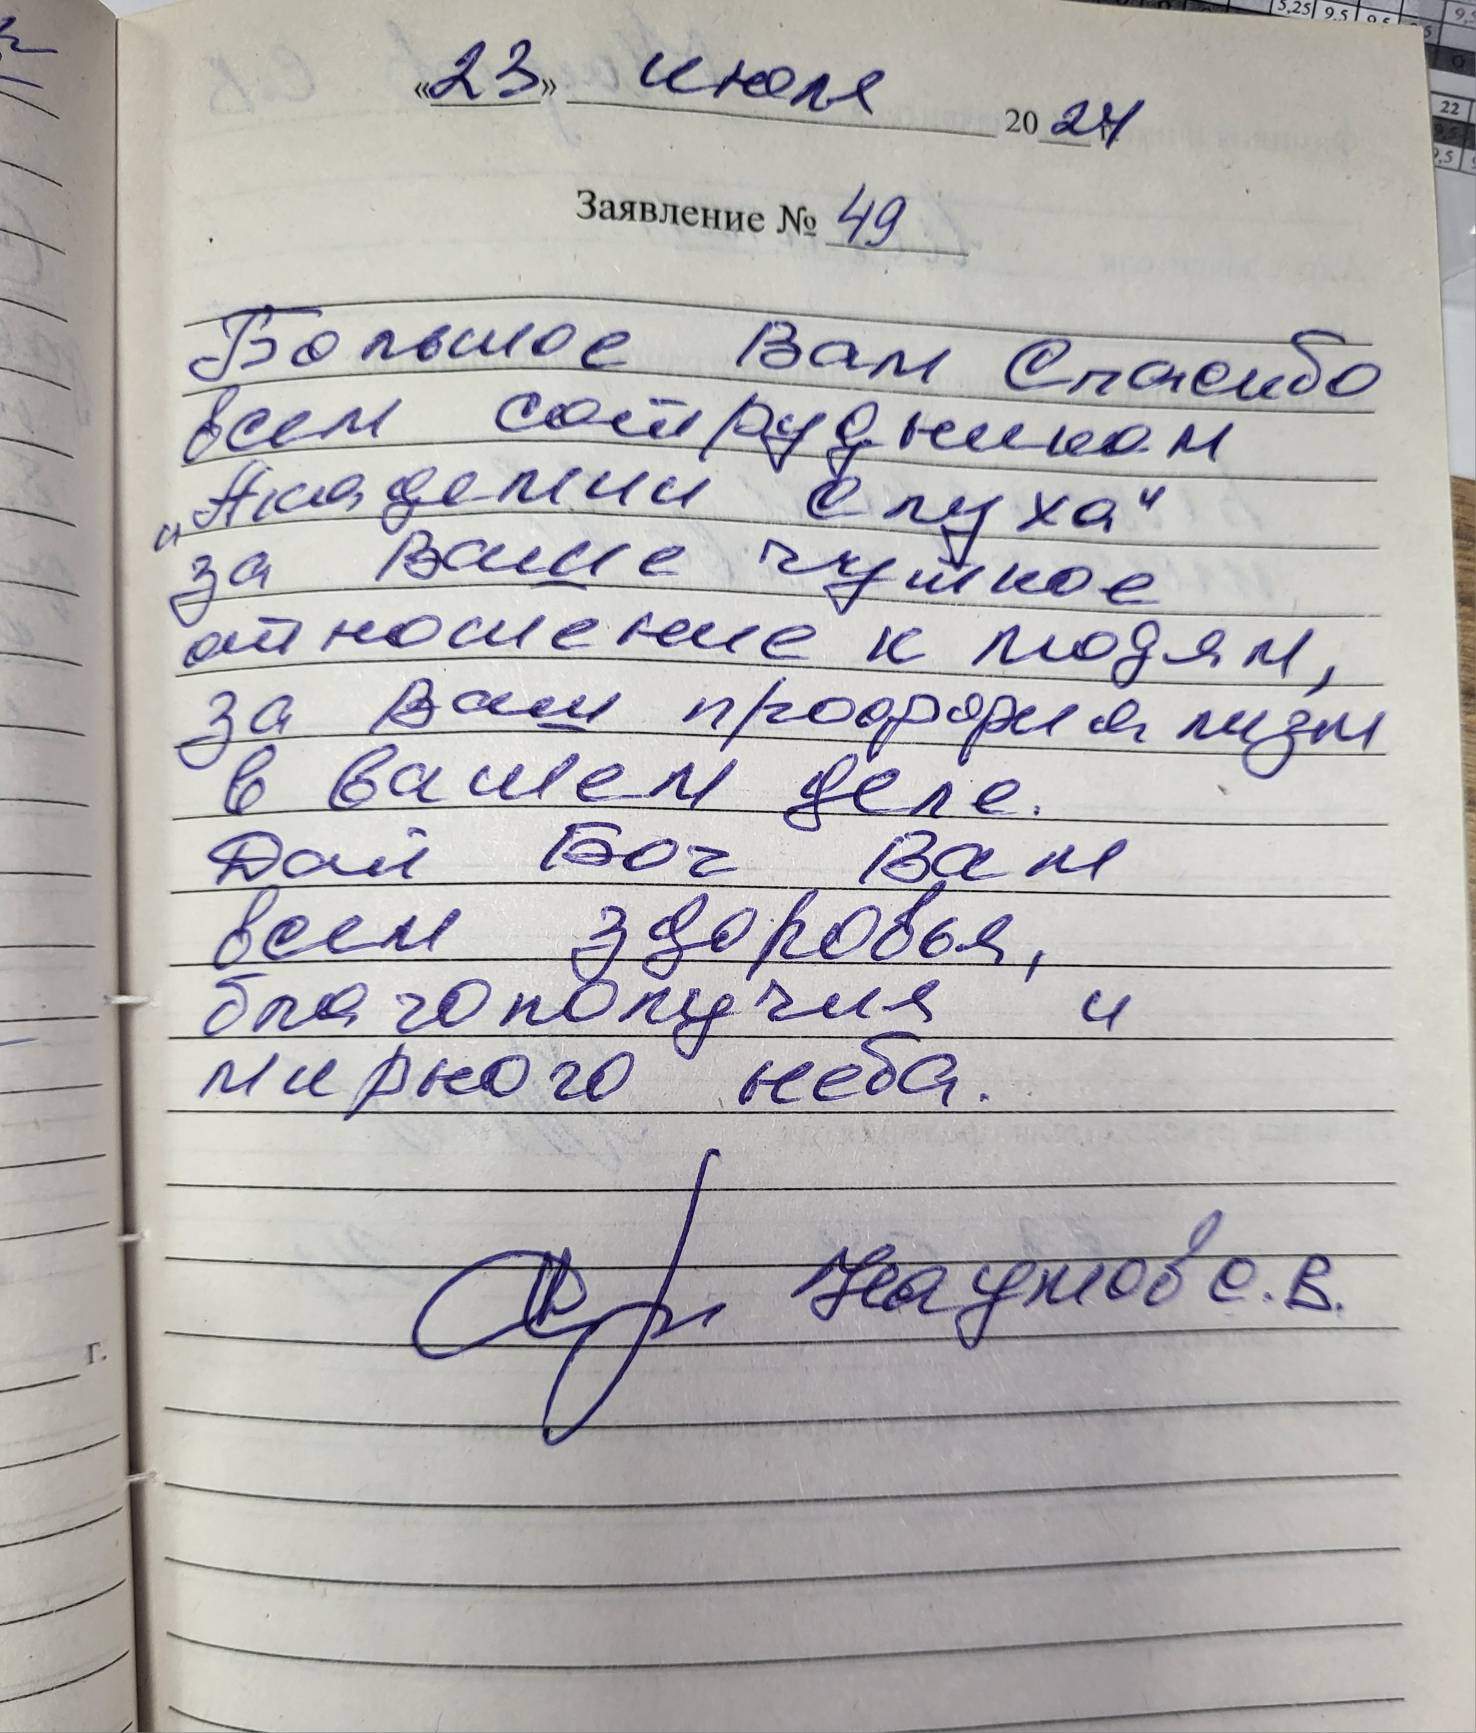 «23» июля 2024
Заявление № 49
Большое Вам Спасибо
всем сотрудникам
"Академии Слуха"
за Ваше чуткое
отношение к людям,
за Ваш профофиализм
в вашем деле.
Дай Бог Вам
всем здоровья,
благополучия и
мирного неба.
Наумов С.В.
г.